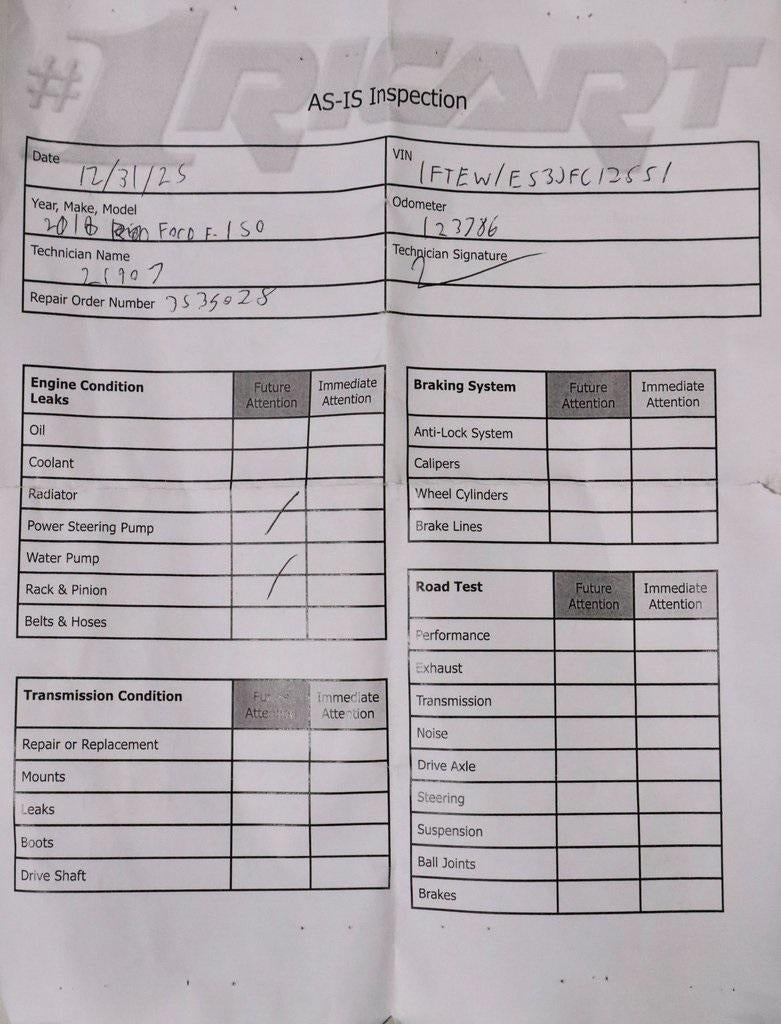 #1 RICART
AS-IS Inspection
Date 12/31/25
VIN 1FTEW1E53JFC12551
Year, Make, Model 2018 Ford F-150
Odometer 123786
Technician Name 21907
Technician Signature
Repair Order Number 3535028
Engine Condition Leaks Future Attention Immediate Attention
Oil
Coolant
Radiator
Power Steering Pump
Water Pump
Rack & Pinion
Belts & Hoses
Transmission Condition Future Attention Immediate Attention
Repair or Replacement
Mounts
Leaks
Boots
Drive Shaft
Braking System Future Attention Immediate Attention
Anti-Lock System
Calipers
Wheel Cylinders
Brake Lines
Road Test Future Attention Immediate Attention
Performance
Exhaust
Transmission
Noise
Drive Axle
Steering
Suspension
Ball Joints
Brakes